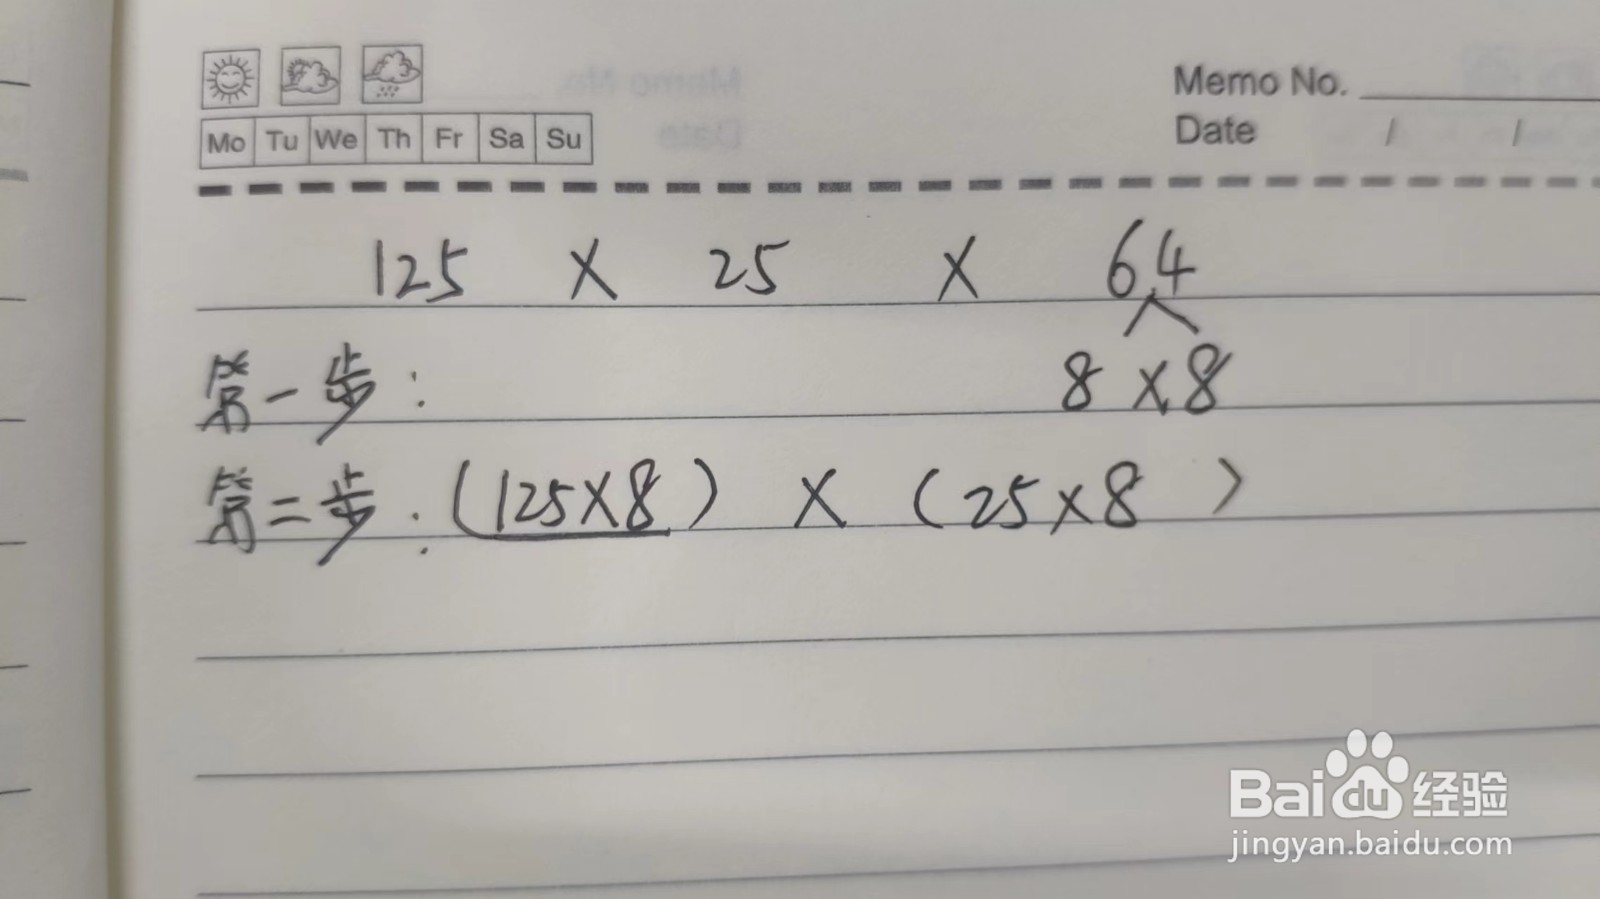 Memo No.
Mo Tu We Th Fr Sa Su
Date / /
125 × 25 × 64
第一步: 8×8
第二步: (125×8) × (25×8)
Baidu 经验
jingyan.baidu.com